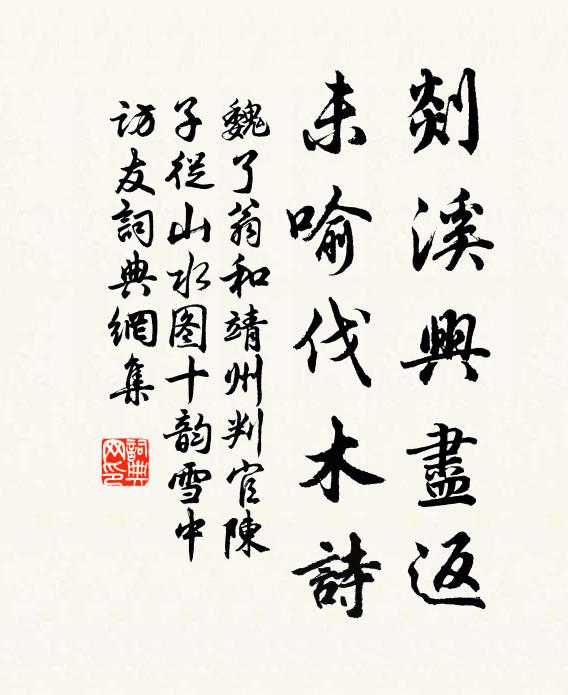 剡溪興盡返
未喻伐木詩
魏了翁和靖州判官陳
子從山水图十韵雪中
访友詞典網集
詞典網印